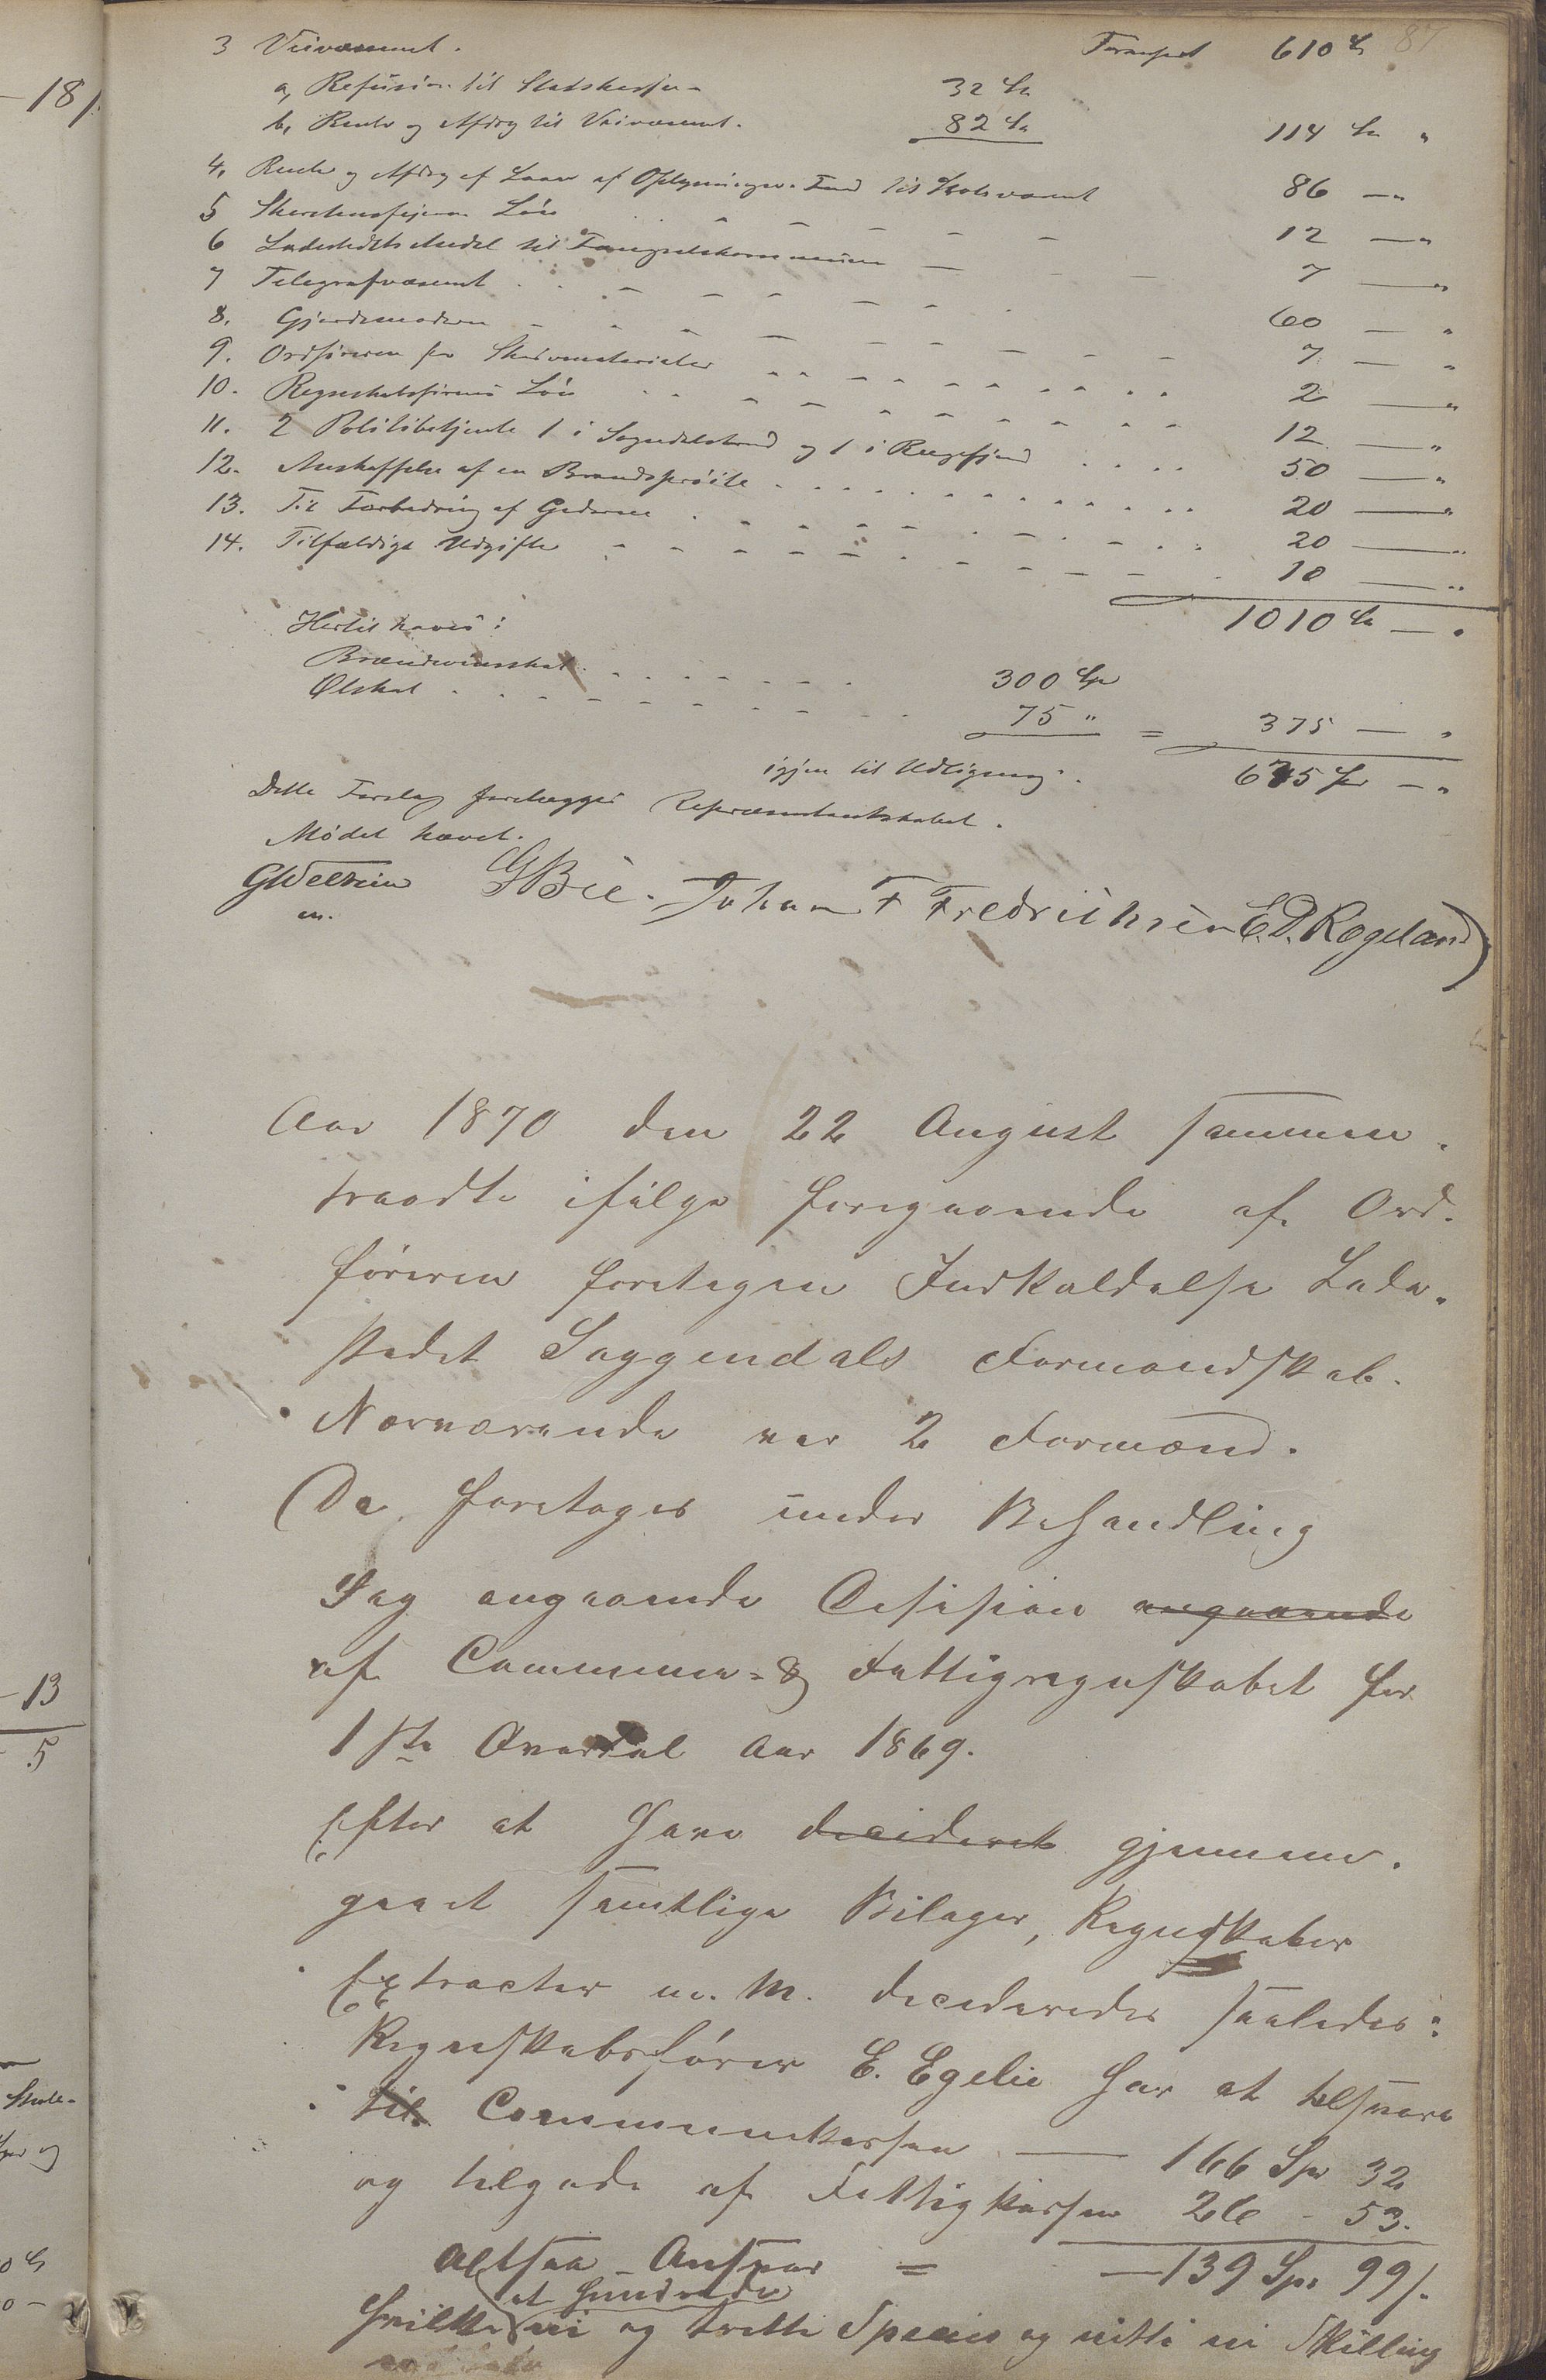 87
3 Veivæsenet. Transport 610 Sp
a, Refusion til Statskassen 32 Sp
b, Rente og Afdrag til Veivæsenet. 82 Sp 114 Sp "
4, Rente og Afdrag af Laan af Oplysnings-Fond til Skolevæsenet 86 — "
5 Skorstensfejeren Løn 12 — "
6 Ladestedets Andel til Fængselskommunen 7 — "
7 Telegrafvæsenet 60 — "
8. Gjordemoderen 7 — "
9. Ordføreren for Skrivematerialer 2 — "
10. Regnskabsførerens Løn 12 — "
11. 2 Politibetjente 1 i Sogndalstrand og 1 i Rægefjord 50 — "
12. Anskaffelse af en Brandsprøite 20 — "
13. Til Forbedring af Gaderne 20 — "
14. Tilfældige Udgifter 10 — "
1010 Sp — "
Hertil haves:
Brændevinsskat 300 Sp
Ølskat 75 " = 375 — "
igjen til Udligning. 635 Sp — "
Dette Forslag forelægges Repræsentantskabet.
Mødet hævet.
GWellein G Bie. Johan F Fredrichsen E.D. Rogeland
m.
Aar 1870 den 22 August sammen-
traadte ifølge foregaaende af Ord-
føreren foretagen Indkaldelse Lade-
stedet Soggendals Formandskab.
Nærværende var 2 Formænd.
Da foretoges under Behandling
Sag angaaende Desision angaaende
af Commune- & Fattigregnskabet for
1ste Qvartal Aar 1869.
Efter at have decideret gjennem-
gaaet samtlige Bilager, Regnskaber
Extracter m. M. decideredes saaledes:
Regnskabsfører E. Egelie har at tilsvare
til Communekassen — 166 Sp 32
og tilgode af Fattigkassen 26 - 53.
Altsaa Ansvar = — 139 Sp. 99/.
et hundrede
hvilke ni og tretti Species og nitti ni Skilling
— 18/.
— 13
5
Skole-
og